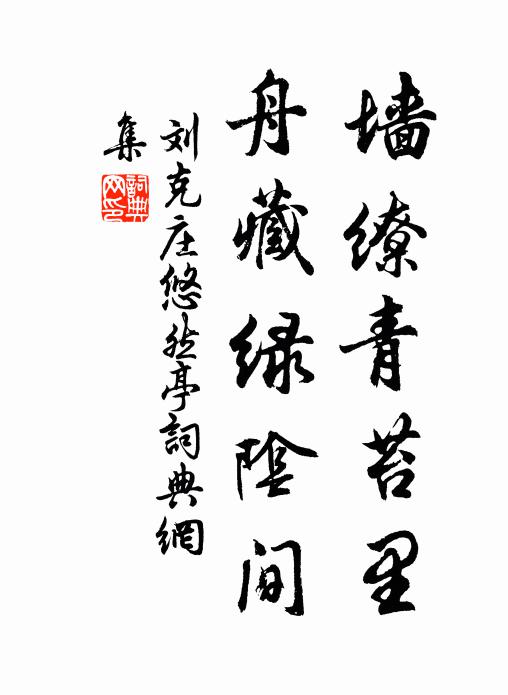 墙缭青苔里
舟藏绿阴间
刘克庄悠然亭詞典網
集
詞典网印